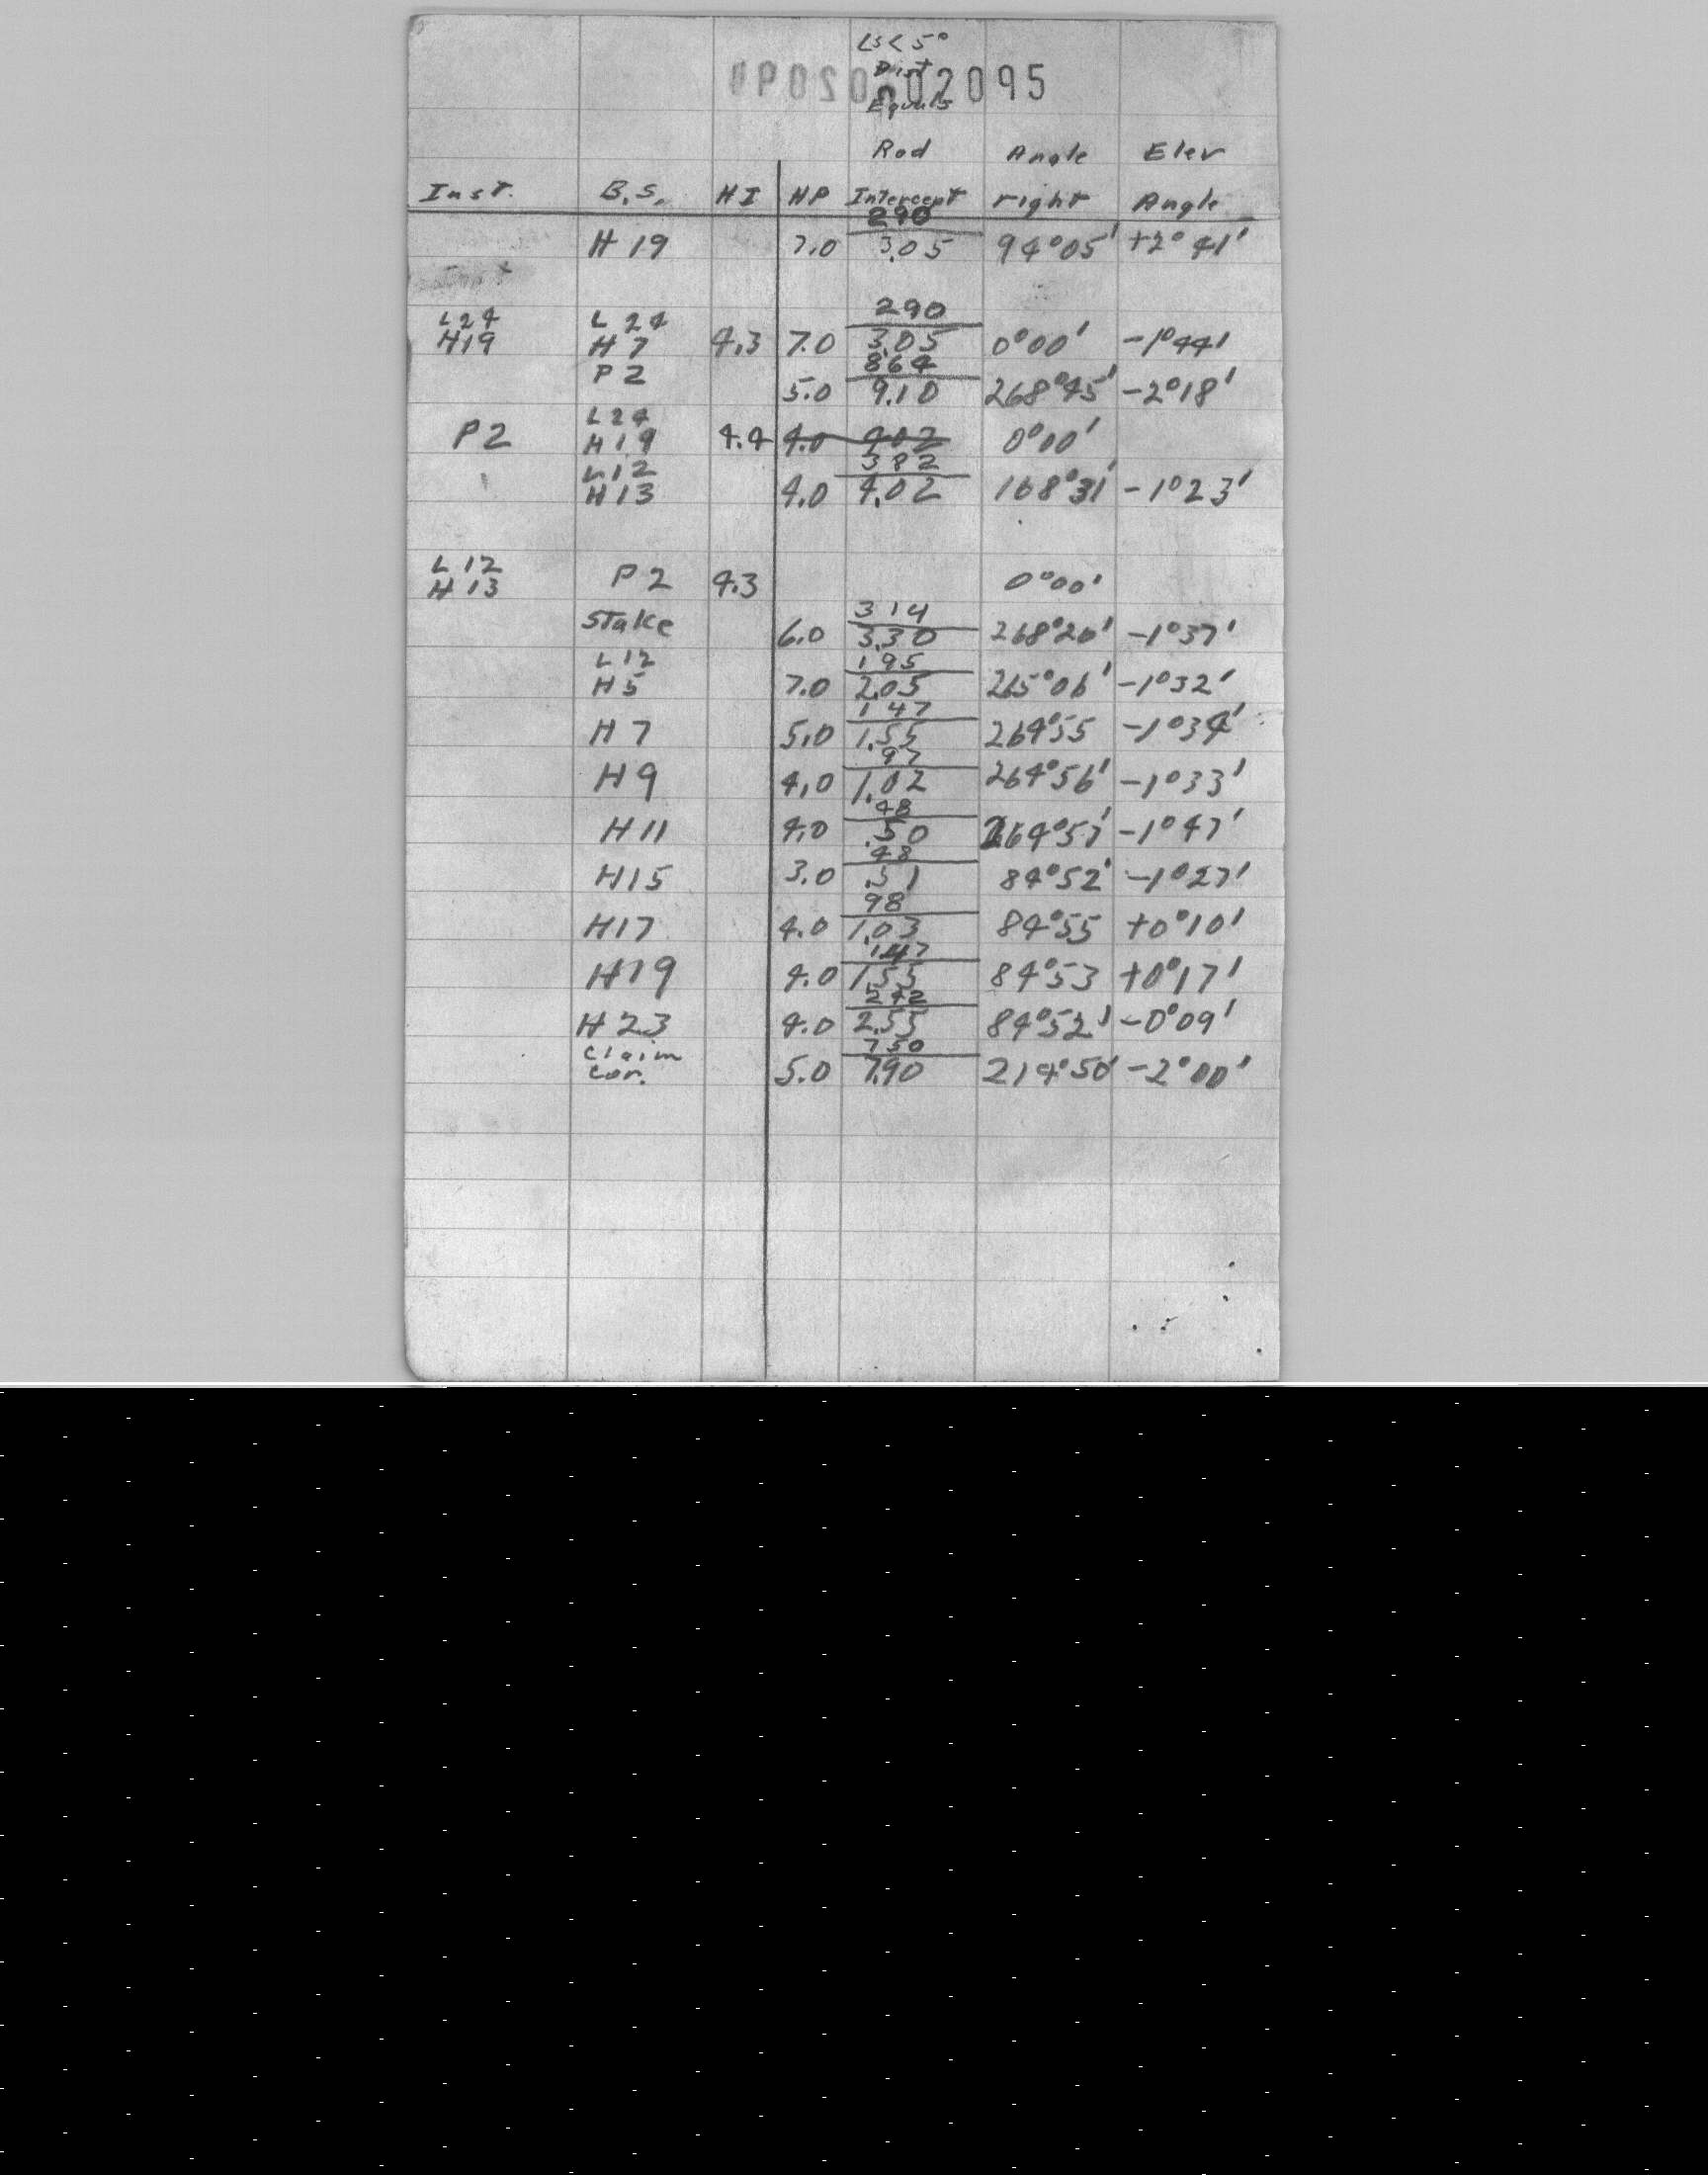 ∠s < 5°
Dist
02095
Equals
Rod Angle Elev
Inst. B.S. HI HP Intercept right Angle
290
H 19 7.0 3.05 94°05' +2°41'
290
L 24 L 24
H19 H 7 4.3 7.0 3.05 0°00' -1°44'
P 2 864
5.0 9.10 268°45' -2°18'
L 24
P 2 H 19 4.4 4.0 402 0°00'
L 12 382
H 13 4.0 4.02 168°31' -1°23'
L 12
H 13 P 2 4.3 0°00'
314
Stake 6.0 3.30 268°26' -1°37'
L 12 195
H 5 7.0 2.05 265°06' -1°32'
147
H 7 5.0 1.55 264°55 -1°34'
97
H 9 4.0 1.02 264°56' -1°33'
48
H 11 4.0 .50 264°51' -1°47'
48
H 15 3.0 .51 84°52' -1°27'
98
H 17 4.0 1.03 84°55 +0°10'
147
H 19 4.0 1.55 84°53 +0°17'
242
H 23 4.0 2.55 84°52' -0°09'
Claim 750
Cor. 5.0 7.90 214°50' -2°00'